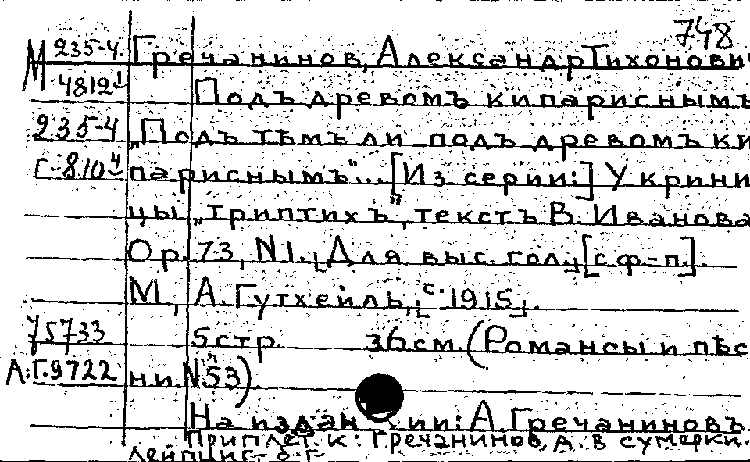 748
М 235-4 Гречанинов, Александр Тихонови
4812 Подъ древомъ кипариснымъ
235-4 „Подъ тѣмъ ли подъ древомъ ки
Г-810 париснымъ"... [Из серии:] У крини
цы „триптихъ", текстъ В. Иванова
Ор. 73, N1. Для выс. гол. [с ф-п].
М., А. Гутхейль, с. 1915.
75733 5 стр. 36 см. (Романсы и пѣс
А.Г.9722 ни. N53)
На издании: А. Гречаниновъ.
Приплет. к: Гречанинов, А. В сумерки.
Лейпциг б. г.